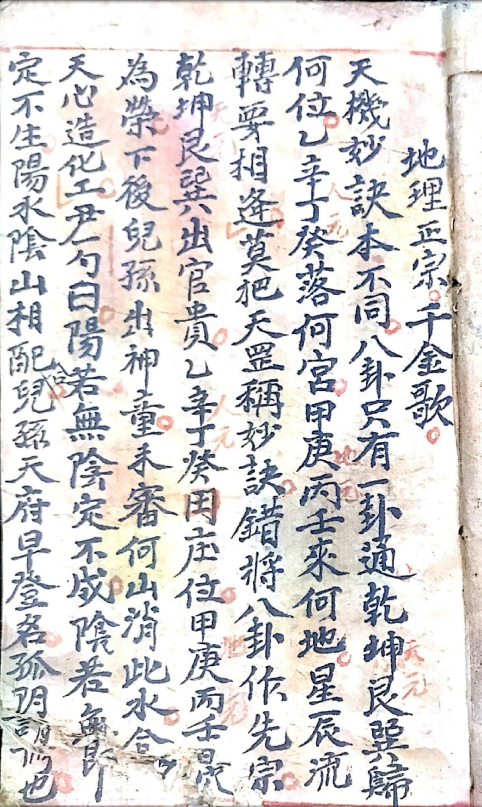 地理正宗。千金歌。
天機妙訣本不同。八卦只有一卦通乾坤艮巽歸
天元
何位。乙辛丁癸落何宮。甲庚丙壬來何地。星辰流
人元
地元
轉要相逢。莫把天罡稱妙訣。錯將八卦作先宗。
乾坤艮巽出官貴。乙辛丁癸田庄位。甲庚丙壬最
天元
人元
地元
為榮。下後兒孫出神童。未審何山消此水。合
天心造化工。勺曰陽若無陰定不成。陰若無
定不生。陽水陰山相配。兒孫天府早登名。孤阴也